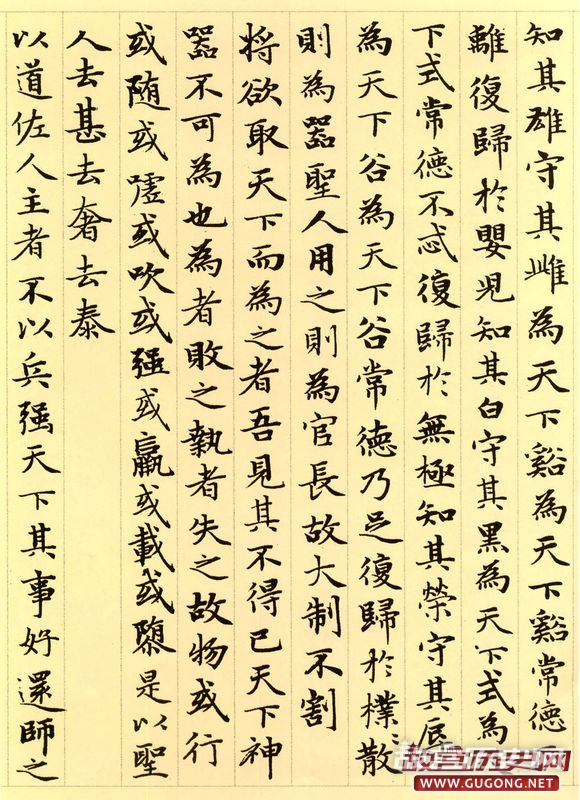 知其雄守其雌為天下谿為天下谿常德
離復歸於嬰兒知其白守其黑為天下式為
下式常德不忒復歸於無極知其榮守其辱
為天下谷為天下谷常德乃足復歸於樸散
則為噐聖人用之則為官長故大制不割
將欲取天下而為之者吾見其不得已天下神
噐不可為也為者敗之執者失之故物或行
或随或噓或吹或强或羸或載或隳是以聖
人去甚去奢去泰
以道佐人主者不以兵强天下其事好還師之
故宫历史网
WWW.GUGONG.NET